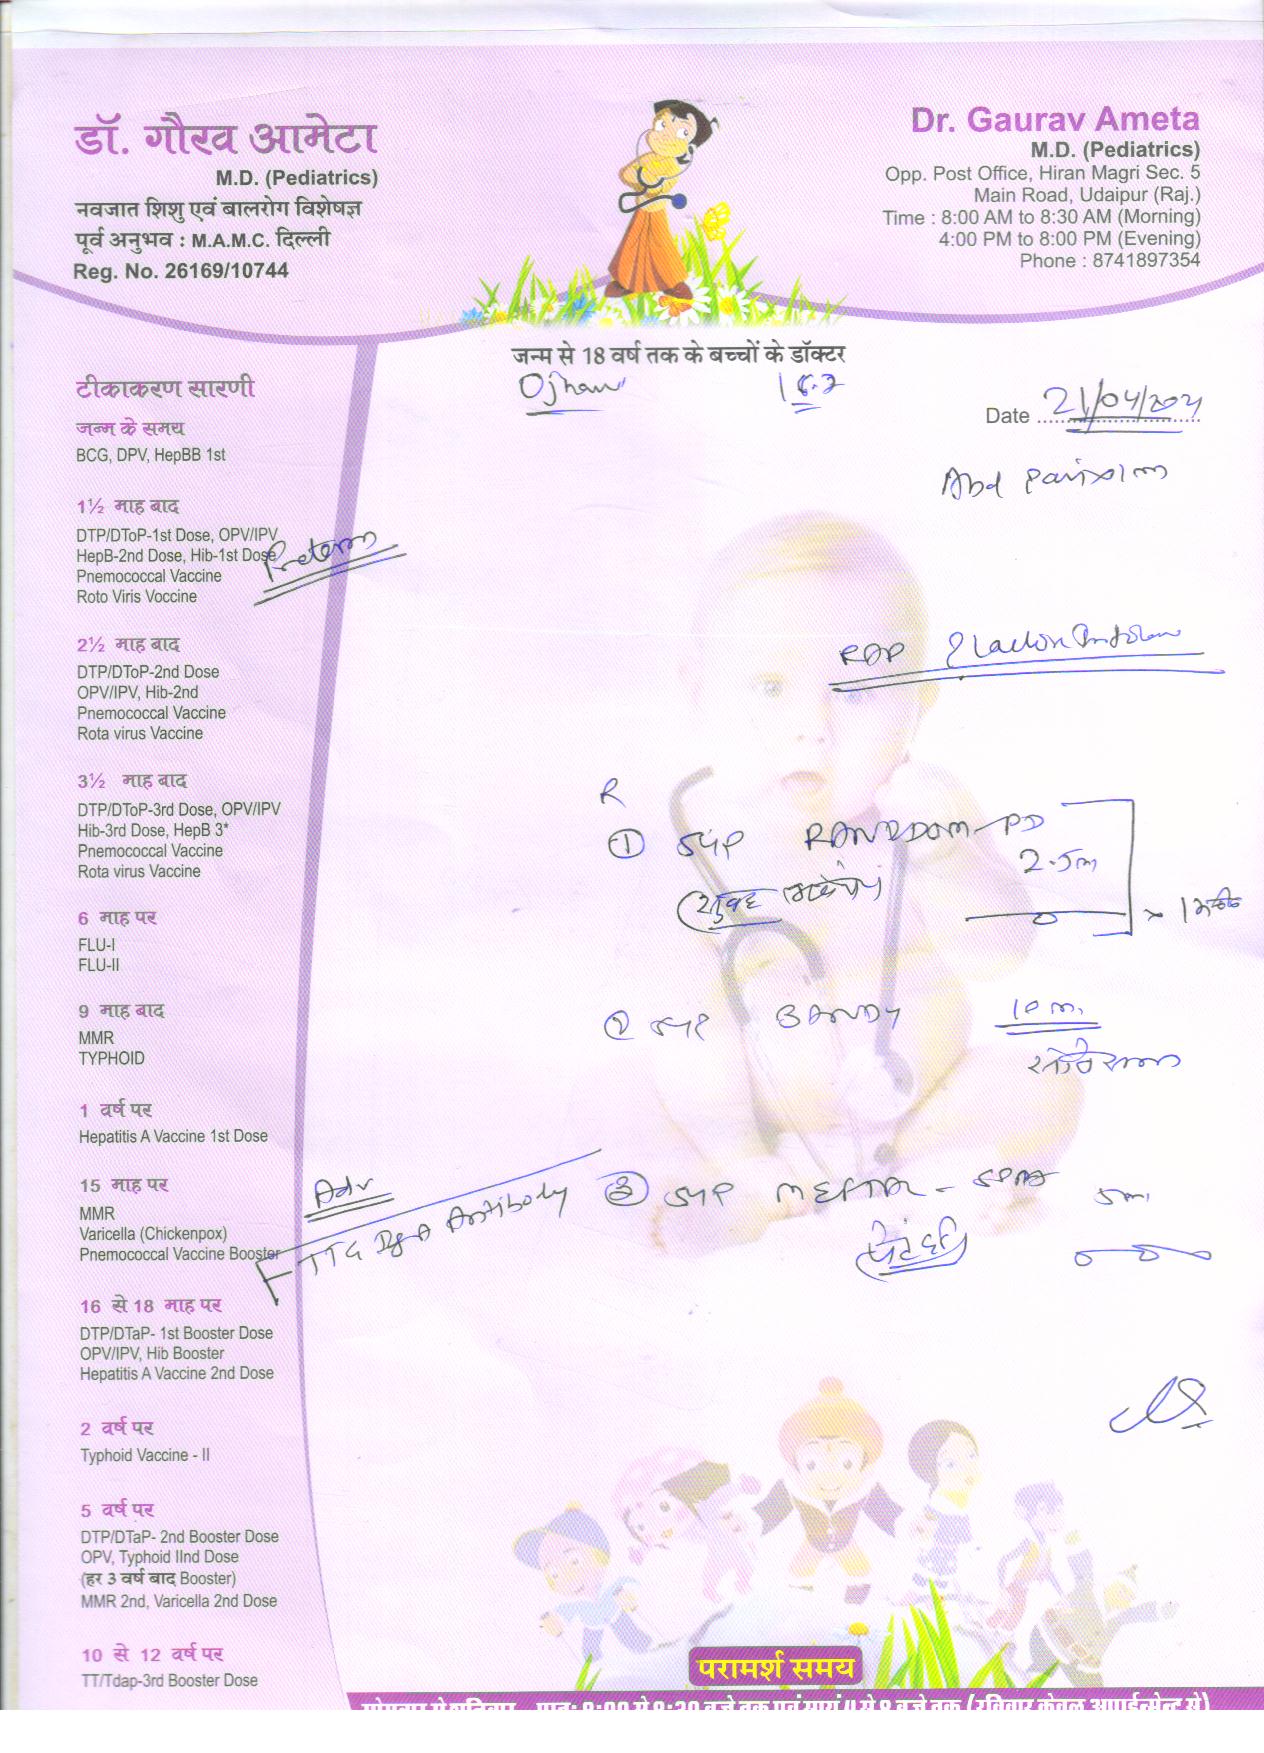 डॉ. गौरव आमेटा
M.D. (Pediatrics)
नवजात शिशु एवं बालरोग विशेषज्ञ
पूर्व अनुभव : M.A.M.C. दिल्ली
Reg. No. 26169/10744
Dr. Gaurav Ameta
M.D. (Pediatrics)
Opp. Post Office, Hiran Magri Sec. 5
Main Road, Udaipur (Raj.)
Time : 8:00 AM to 8:30 AM (Morning)
4:00 PM to 8:00 PM (Evening)
Phone : 8741897354
जन्म से 18 वर्ष तक के बच्चों के डॉक्टर
Date 21/04/2021
Abd
RAP
R
① SYP RANIDOM-PD
2.5ml
(सुबह
② SYP BANDY 10 ml
③ SYP MEFTAL-SPAS 5ml
Preterm
Adv
TTG IgA Antibody
टीकाकरण सारणी
जन्म के समय
BCG, DPV, HepBB 1st
1½ माह बाद
DTP/DToP-1st Dose, OPV/IPV
HepB-2nd Dose, Hib-1st Dose
Pnemococcal Vaccine
Roto Viris Voccine
2½ माह बाद
DTP/DToP-2nd Dose
OPV/IPV, Hib-2nd
Pnemococcal Vaccine
Rota virus Vaccine
3½ माह बाद
DTP/DToP-3rd Dose, OPV/IPV
Hib-3rd Dose, HepB 3*
Pnemococcal Vaccine
Rota virus Vaccine
6 माह पर
FLU-I
FLU-II
9 माह बाद
MMR
TYPHOID
1 वर्ष पर
Hepatitis A Vaccine 1st Dose
15 माह पर
MMR
Varicella (Chickenpox)
Pnemococcal Vaccine Booster
16 से 18 माह पर
DTP/DTaP- 1st Booster Dose
OPV/IPV, Hib Booster
Hepatitis A Vaccine 2nd Dose
2 वर्ष पर
Typhoid Vaccine - II
5 वर्ष पर
DTP/DTaP- 2nd Booster Dose
OPV, Typhoid IInd Dose
(हर 3 वर्ष बाद Booster)
MMR 2nd, Varicella 2nd Dose
10 से 12 वर्ष पर
TT/Tdap-3rd Booster Dose
परामर्श समय